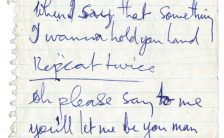 When I say that something
I wanna hold you hand
Repeat twice
Oh please say to me
you'll let me be you man